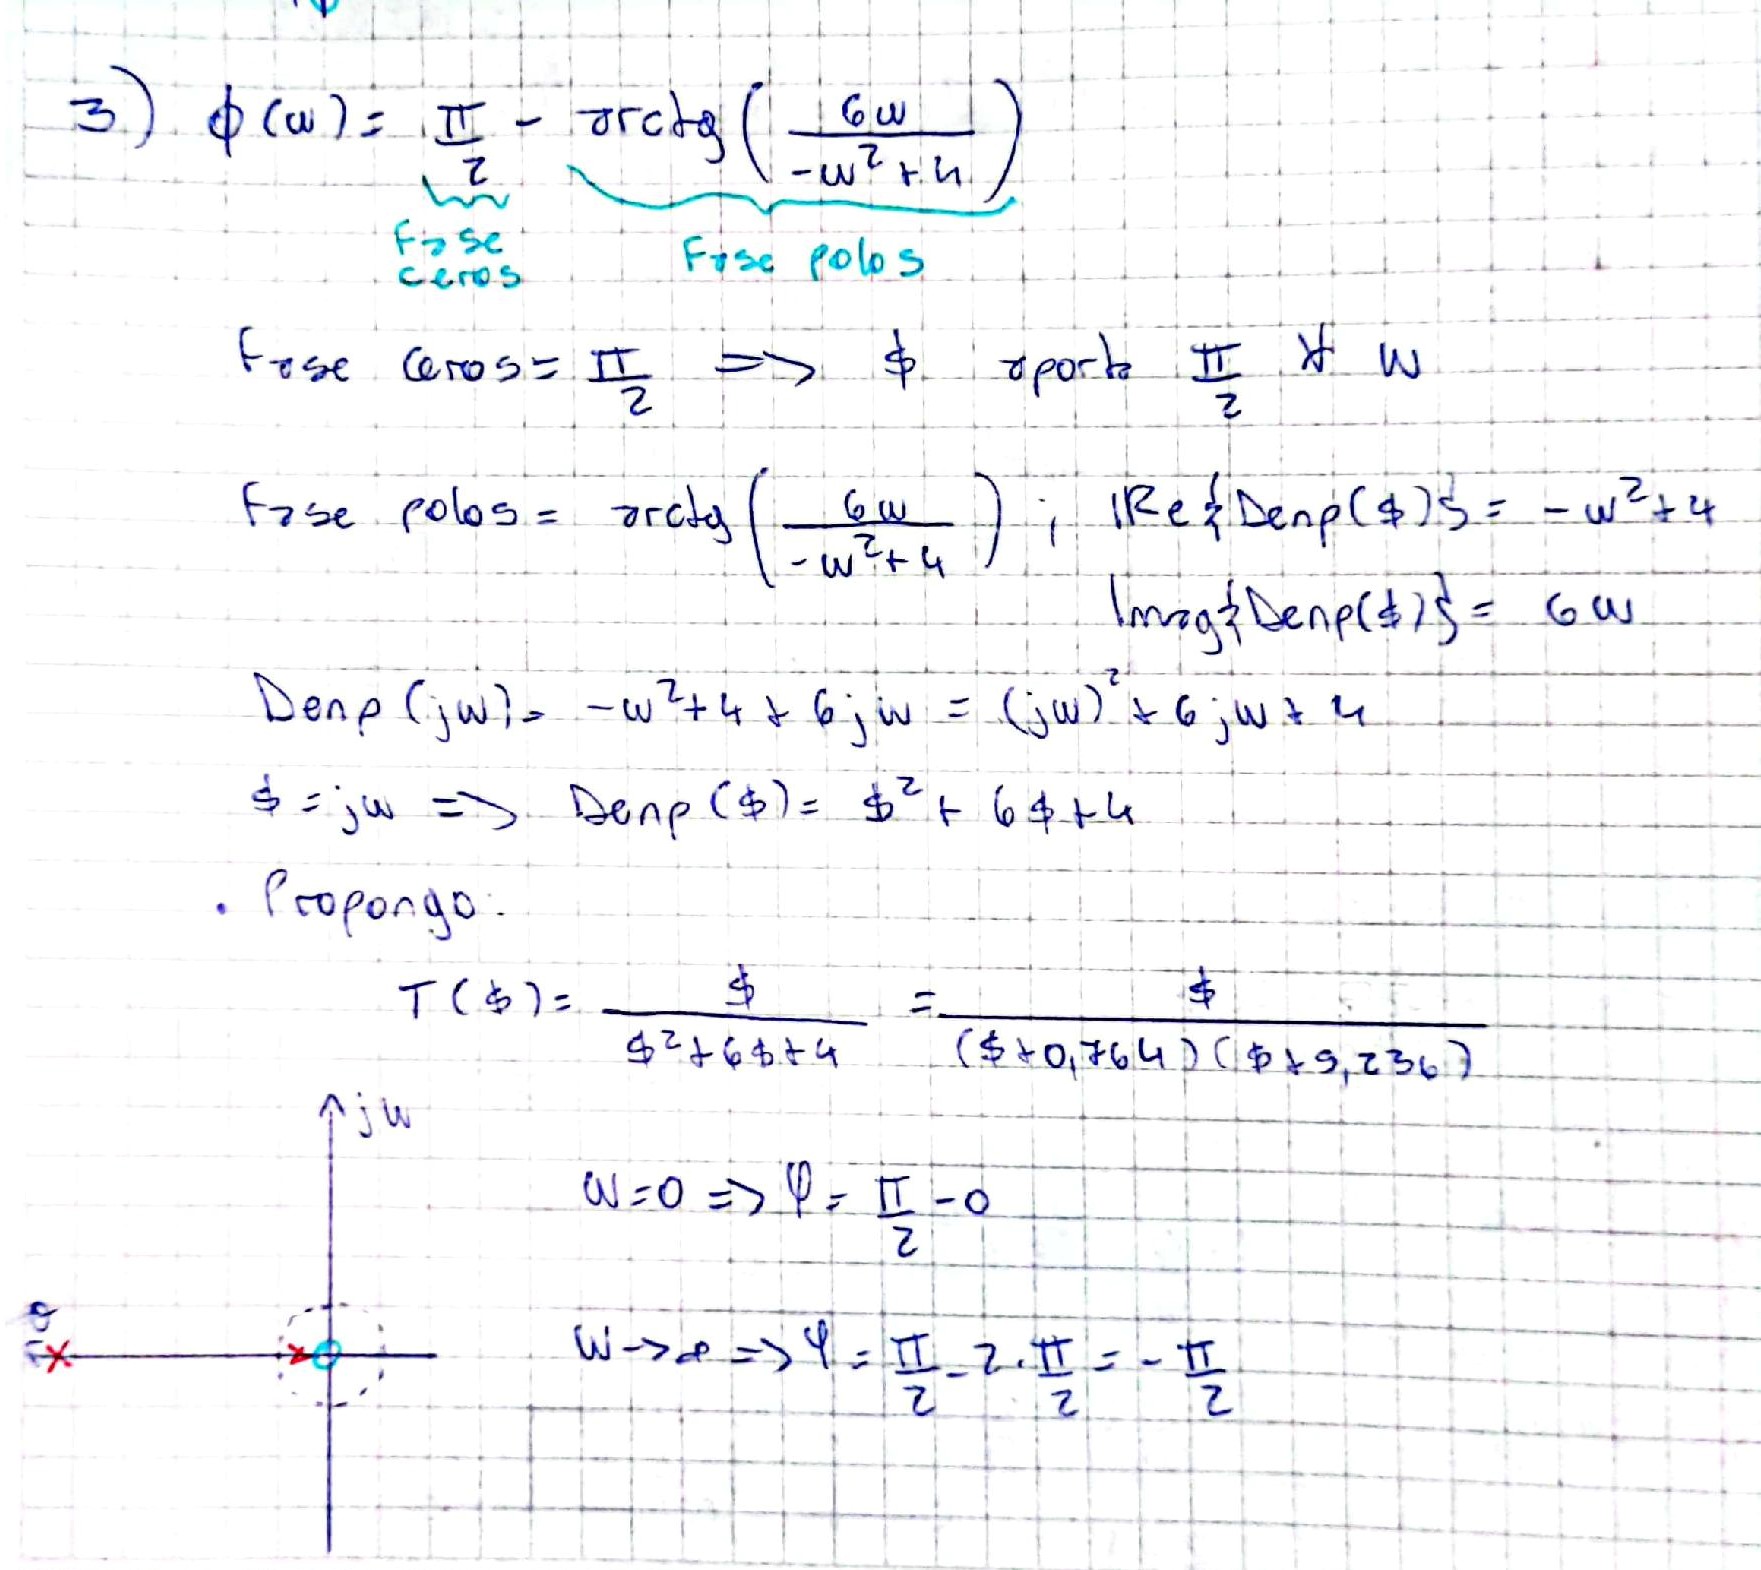 3) ϕ(w) = π/2 - arctg(6w/(-w²+4))
Fase ceros Fase polos
Fase ceros = π/2 => $ aporta π/2 ∀ w
Fase polos = arctg(6w/(-w²+4)) ; Re{Denp($)} = -w²+4
Imag{Denp($)} = 6w
Denp(jw) = -w²+4+6jw = (jw)²+6jw+4
$ = jw => Denp($) = $²+6$+4
. Propongo:
T($) = $/($²+6$+4) = $/(($+0,764)($+5,236))
jw
w=0 => φ = π/2 - 0
σ
w->∞ => φ = π/2 - 2.π/2 = -π/2